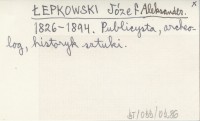 ŁEPKOWSKI Józef Aleksander.
1826-1894. Publicysta, archeo-
log, historyk sztuki.